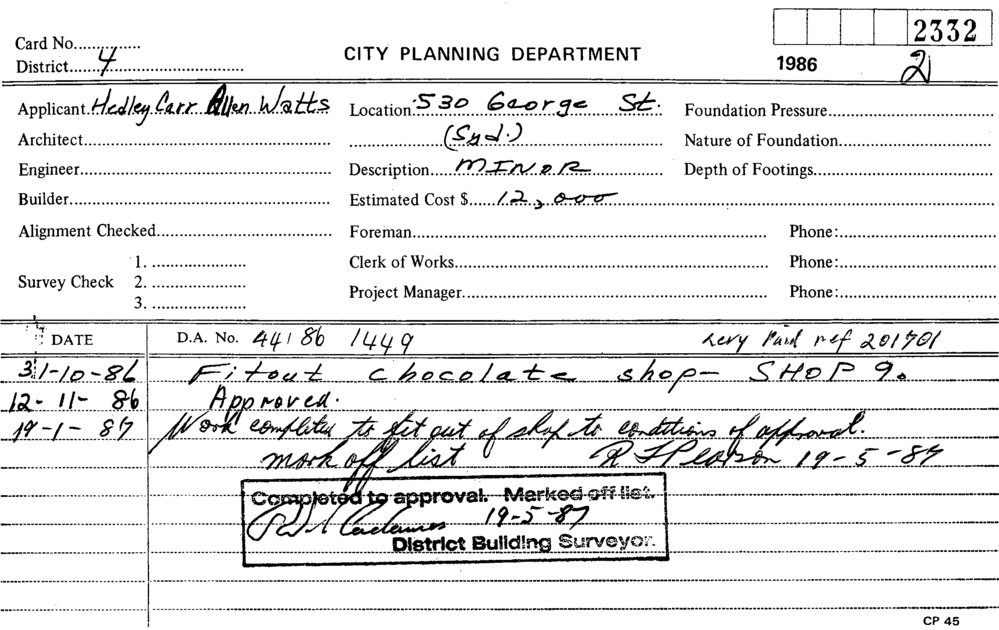 2332
Card No.
CITY PLANNING DEPARTMENT
District 4
1986 2
Applicant Hedley Carr Allen Watts Location 530 George St. Foundation Pressure
Architect (Syd.) Nature of Foundation
Engineer Description MINOR Depth of Footings
Builder Estimated Cost $ 12,000
Alignment Checked Foreman Phone:
1. Clerk of Works Phone:
Survey Check 2.
3. Project Manager Phone:
DATE D.A. No. 44 86 1449 Levy Paid ref 201701
31-10-86 Fitout chocolate shop- SHOP 9.
12-11-86 Approved.
19-1-87 Work completed to fit out of shop to conditions of approval.
mark off list 19-5-87
Completed to approval. Marked off list.
19-5-87
District Building Surveyor.
CP 45